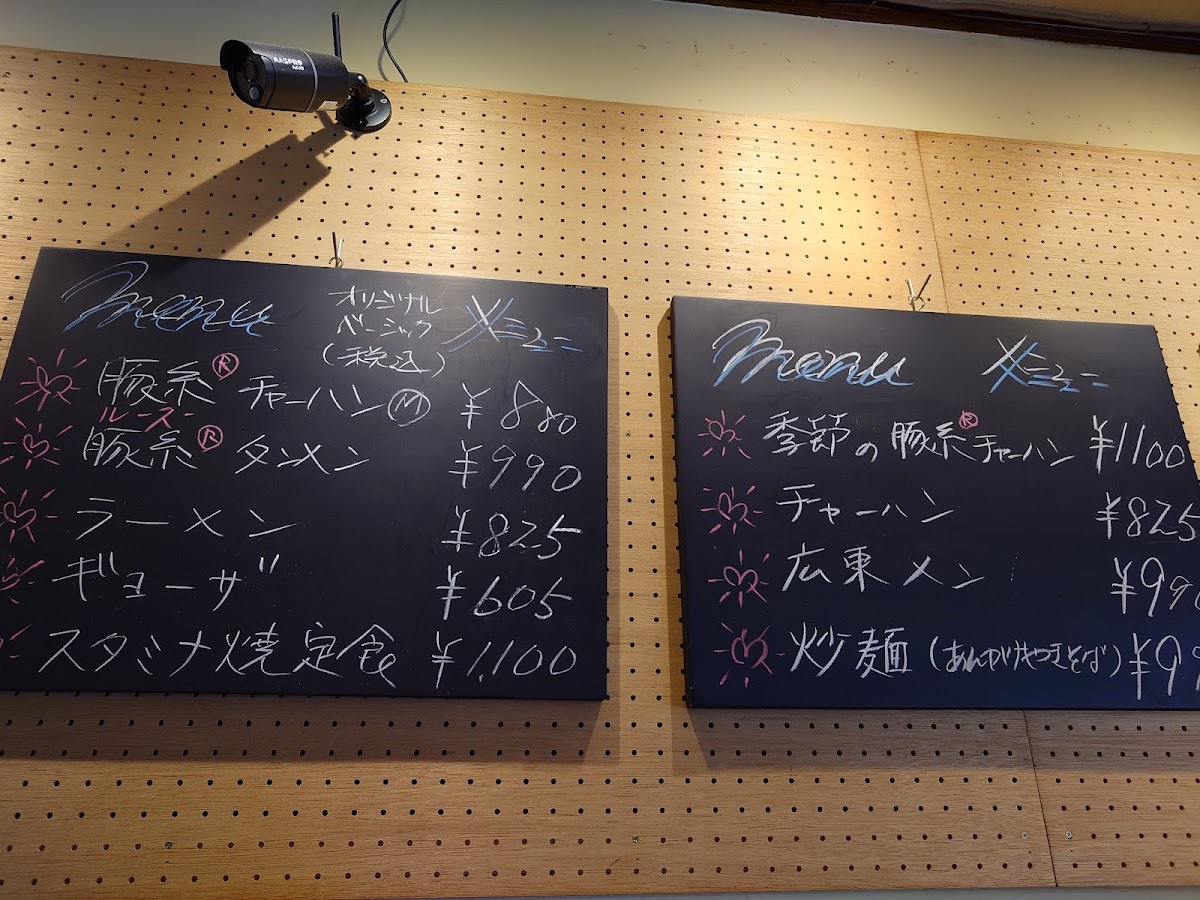 AASPRO
menu オリジナル ベーシック (税込) メニュー
豚糸Ⓡ チャーハンⓂ ¥880
ルースー
豚糸Ⓡ タンメン ¥990
ラーメン ¥825
ギョーザ ¥605
スタミナ焼定食 ¥1,100
menu メニュー
季節の豚糸Ⓡチャーハン ¥1100
チャーハン ¥825
広東メン ¥99
炒麺(あんかけやきそば) ¥99